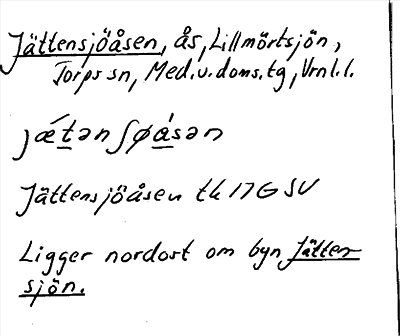 Jättensjöåsen, ås, Lillmörtsjön,
Torps sn, Med.v.doms.tg, Vrnl.l.
jǽtənʃøásən
Jättensjöåsen tk 17G SV
Ligger nordost om byn Jätten-
sjön.